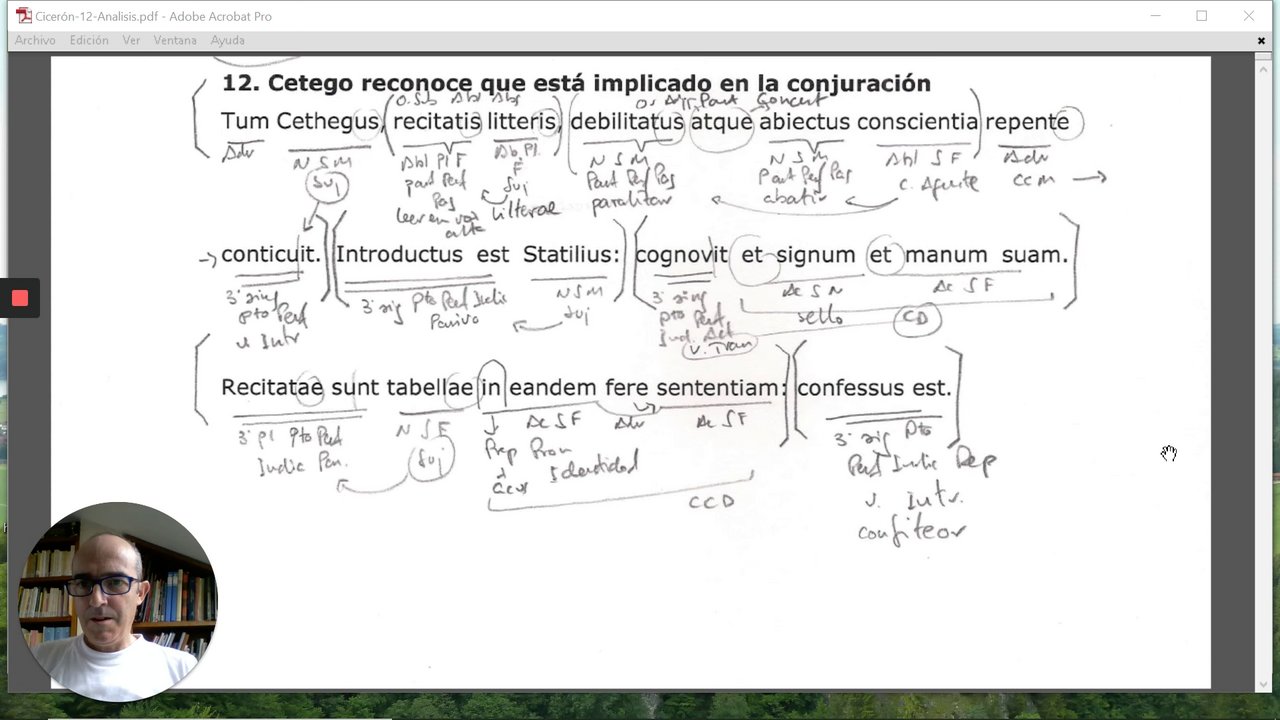 Cicerón-12-Analisis.pdf - Adobe Acrobat Pro
Archivo Edición Ver Ventana Ayuda
12. Cetego reconoce que está implicado en la conjuración
O. Sub Abl Abs O. Adj. Part Concert
Tum Cethegus, recitatis litteris, debilitatus atque abiectus conscientia repente
Adv N S M Abl Pl F Ab. Pl. F N S M N S M Abl S F Adv
Suj part Perf Pas Suj Part Perf Pas Part Perf Pas C. Agente CCM
leer en voz alta litterae paralizar abatir
conticuit. Introductus est Statilius: cognovit et signum et manum suam.
3ª sing 3ª sig Pto Perf Indic N S M 3ª sing Ac S N Ac S F
pto Perf Pasiva Suj pto Perf sello CD
v. Intr Ind. Act
v. Tran
Recitatae sunt tabellae in eandem fere sententiam: confessus est.
3ª pl Pto Perf N S F Ac S F Adv Ac S F 3ª sig Pto
Indic Pas. Suj Prep Pron Perf Indic Dep
Acus Identidad v. Intr.
CCD confiteor